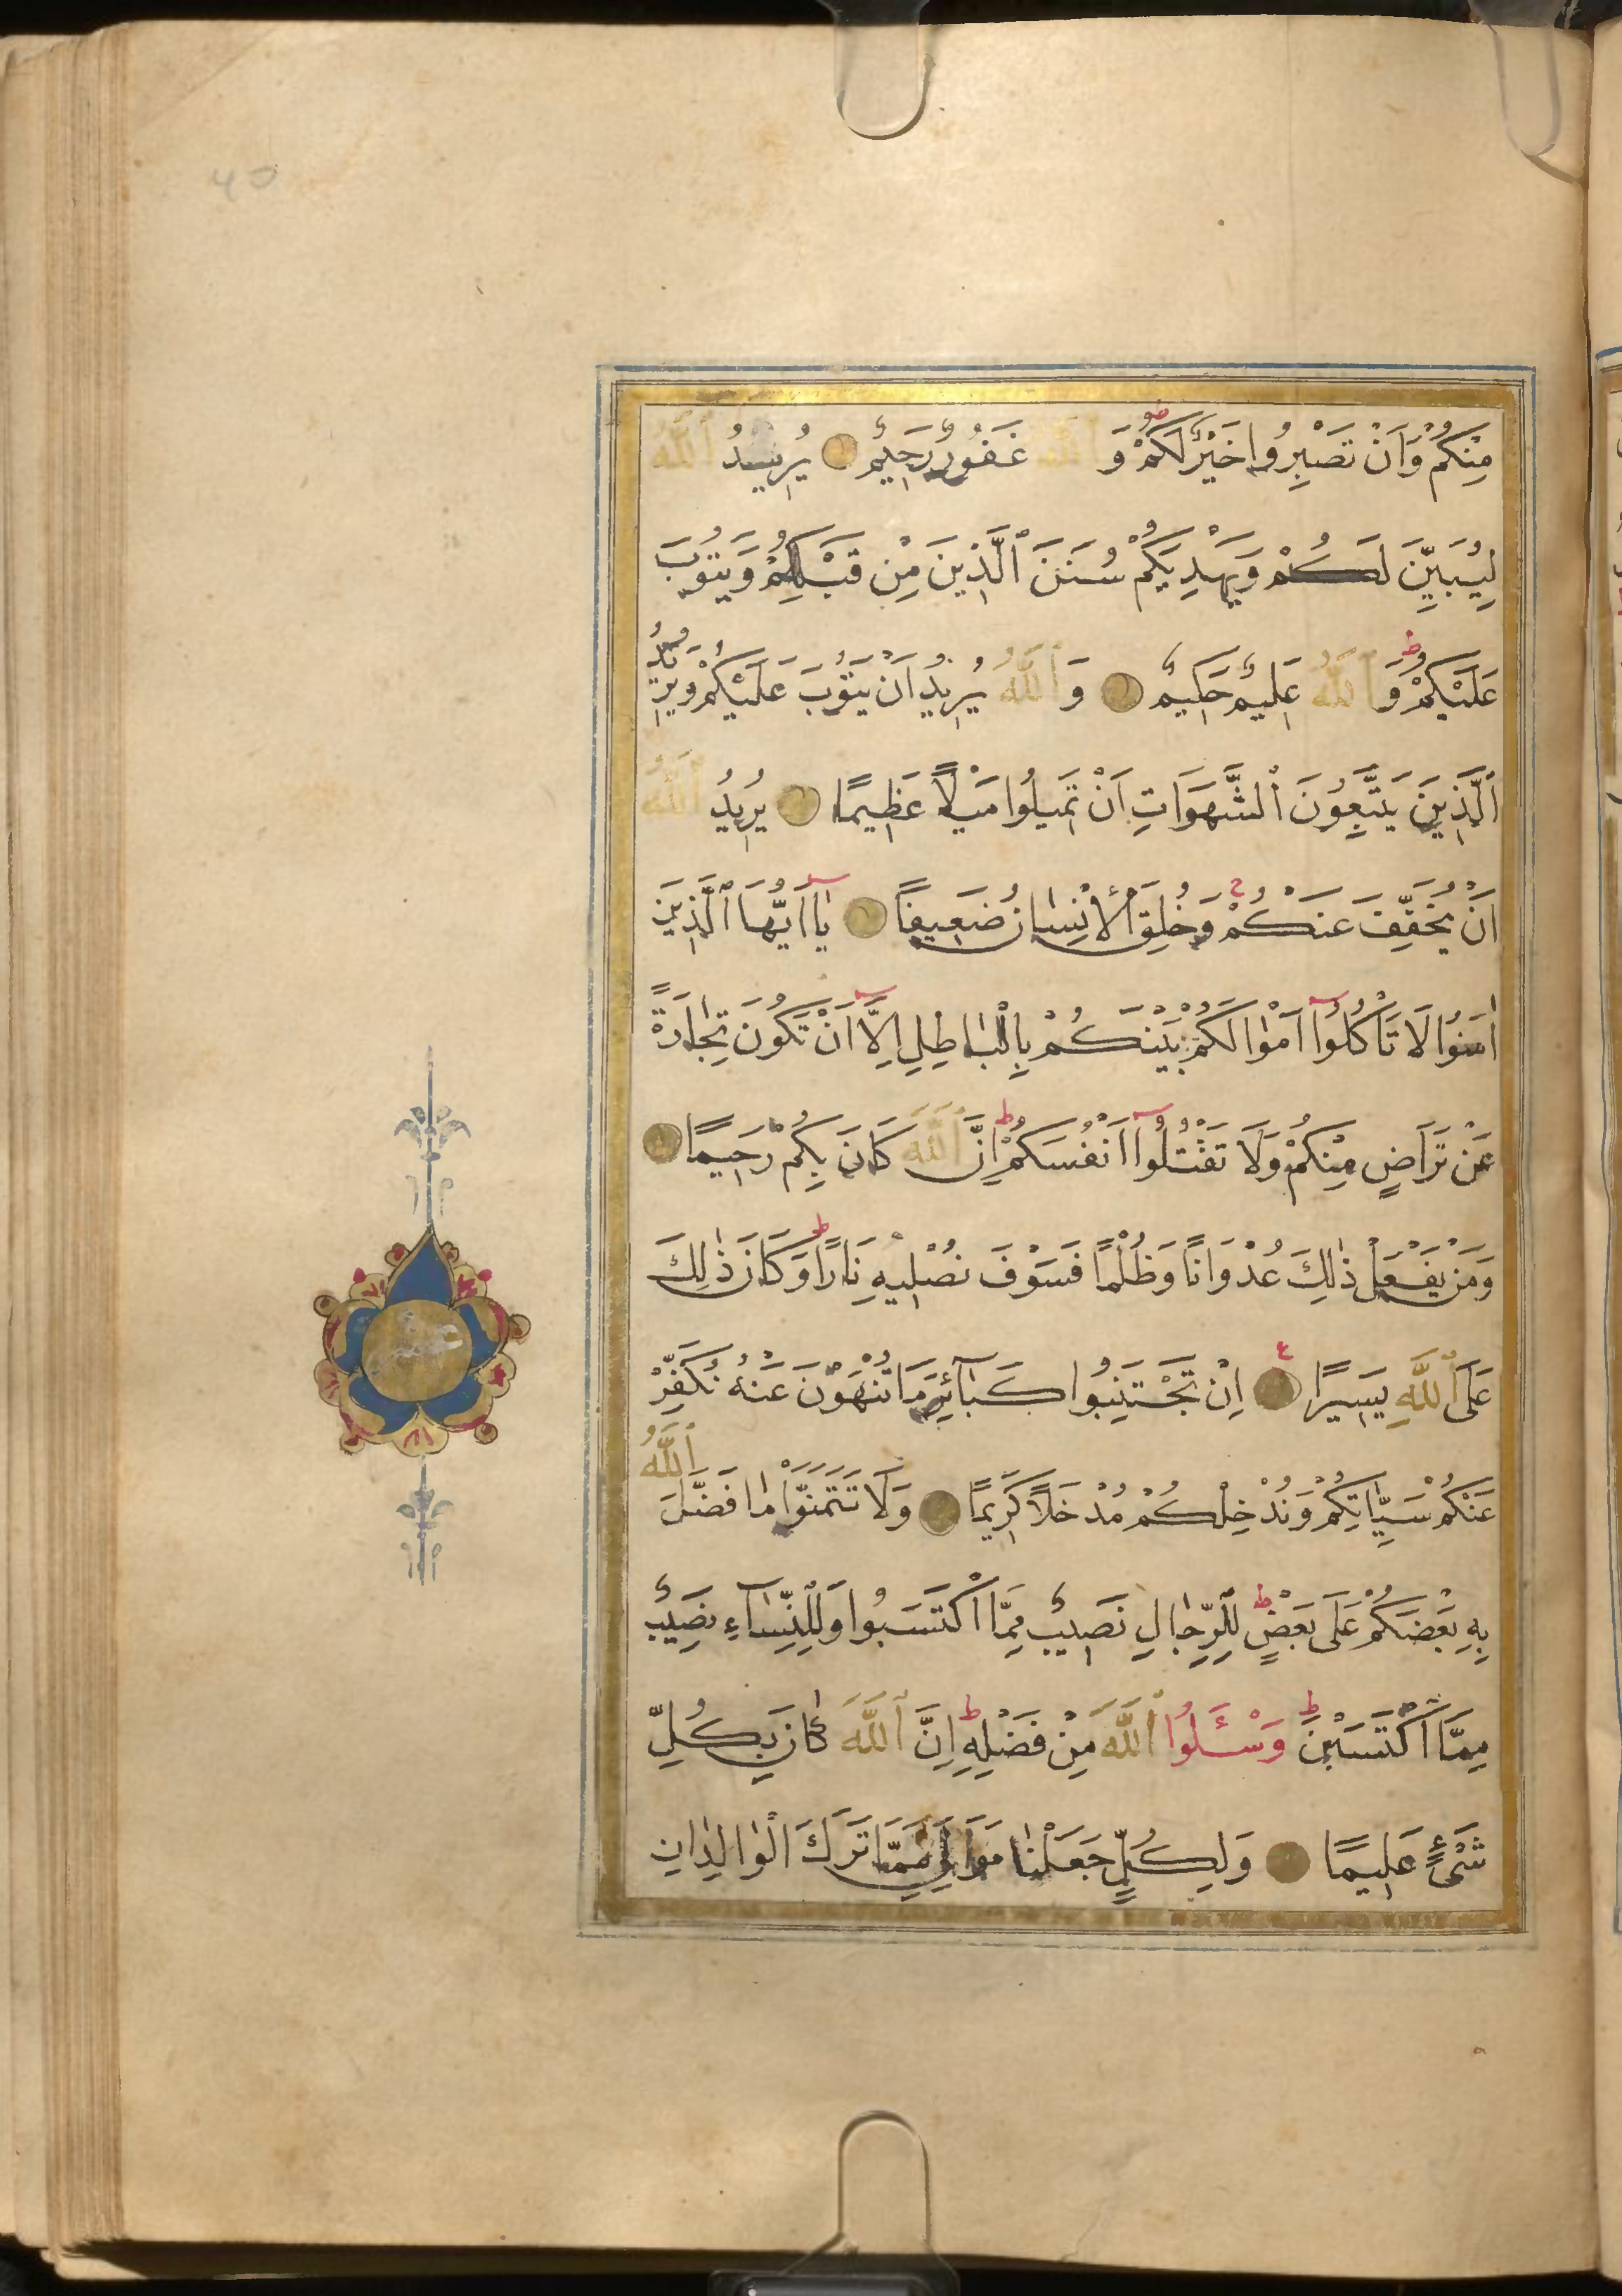 مِنْكُمْ وَاَنْ تَصْبِرُوا خَيْرٌ لَكُمْ وَ ٱللّٰهُ غَفُورٌ رَحِيمٌ يُرِيدُ ٱللّٰهُ
لِيُبَيِّنَ لَكُمْ وَيَهْدِيَكُمْ سُنَنَ ٱلَّذِينَ مِنْ قَبْلِكُمْ وَيَتُوبَ
عَلَيْكُمْ وَ ٱللّٰهُ عَلِيمٌ حَكِيمٌ وَ ٱللّٰهُ يُرِيدُ اَنْ يَتُوبَ عَلَيْكُمْ وَيُرِيدُ
ٱلَّذِينَ يَتَّبِعُونَ ٱلشَّهَوَاتِ اَنْ تَمِيلُوا مَيْلًا عَظِيمًا يُرِيدُ ٱللّٰهُ
اَنْ يُخَفِّفَ عَنْكُمْ وَخُلِقَ ٱلْاِنْسَانُ ضَعِيفًا يَآ اَيُّهَا ٱلَّذِينَ
اٰمَنُوا لَا تَأْكُلُوٓا اَمْوَالَكُمْ بَيْنَكُمْ بِالْبَاطِلِ اِلَّآ اَنْ تَكُونَ تِجَارَةً
عَنْ تَرَاضٍ مِنْكُمْ وَلَا تَقْتُلُوٓا اَنْفُسَكُمْ ط اِنَّ ٱللّٰهَ كَانَ بِكُمْ رَحِيمًا
وَمَنْ يَفْعَلْ ذٰلِكَ عُدْوَانًا وَظُلْمًا فَسَوْفَ نُصْلِيهِ نَارًا ط وَكَانَ ذٰلِكَ
عَلَى ٱللّٰهِ يَسِيرًا ع اِنْ تَجْتَنِبُوا كَبَآئِرَ مَا تُنْهَوْنَ عَنْهُ نُكَفِّرْ
عَنْكُمْ سَيِّاٰتِكُمْ وَنُدْخِلْكُمْ مُدْخَلًا كَرِيمًا وَلَا تَتَمَنَّوْا مَا فَضَّلَ ٱللّٰهُ
بِهِ بَعْضَكُمْ عَلَى بَعْضٍ ط لِلرِّجَالِ نَصِيبٌ مِمَّا اكْتَسَبُوا وَلِلنِّسَآءِ نَصِيبٌ
مِمَّا اكْتَسَبْنَ ط وَسْـَٔلُوا ٱللّٰهَ مِنْ فَضْلِهِ ط اِنَّ ٱللّٰهَ كَانَ بِكُلِّ
شَيْءٍ عَلِيمًا وَلِكُلٍّ جَعَلْنَا مَوَالِيَ مِمَّا تَرَكَ الْوَالِدَانِ